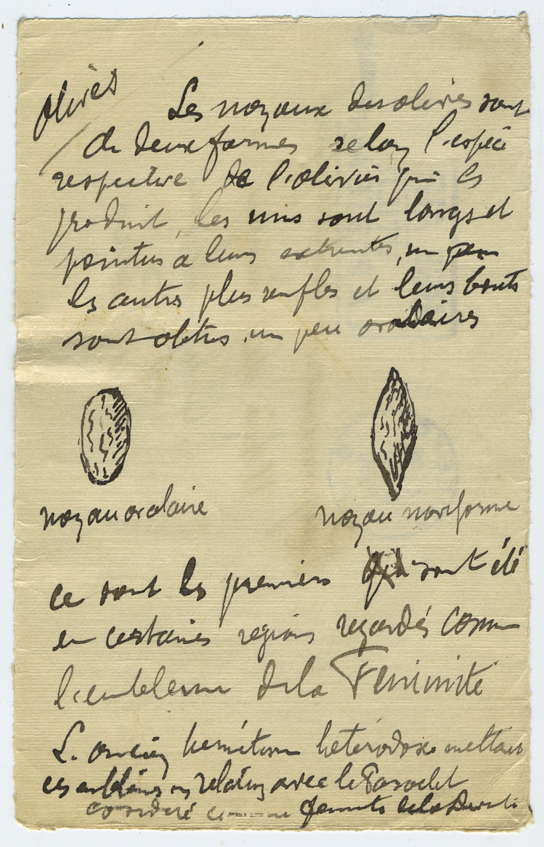 olives
Les noyaux des olives sont
de deux formes selon l'espèce
respective de l'olivier qui les
produit, les uns sont longs et
pointus à leurs extremites, un peu
les autres plus renflés et leurs bouts
sont obtus, un peu ovalaires
noyau ovalaire
noyau naviforme
ce sont les premiers qui sont été
en certaines regions regardés comme
l'embleme de la Feminité
L'ancien hermétisme hétérodoxe mettait
ces emblèmes en relation avec le Paraclet
considéré comme